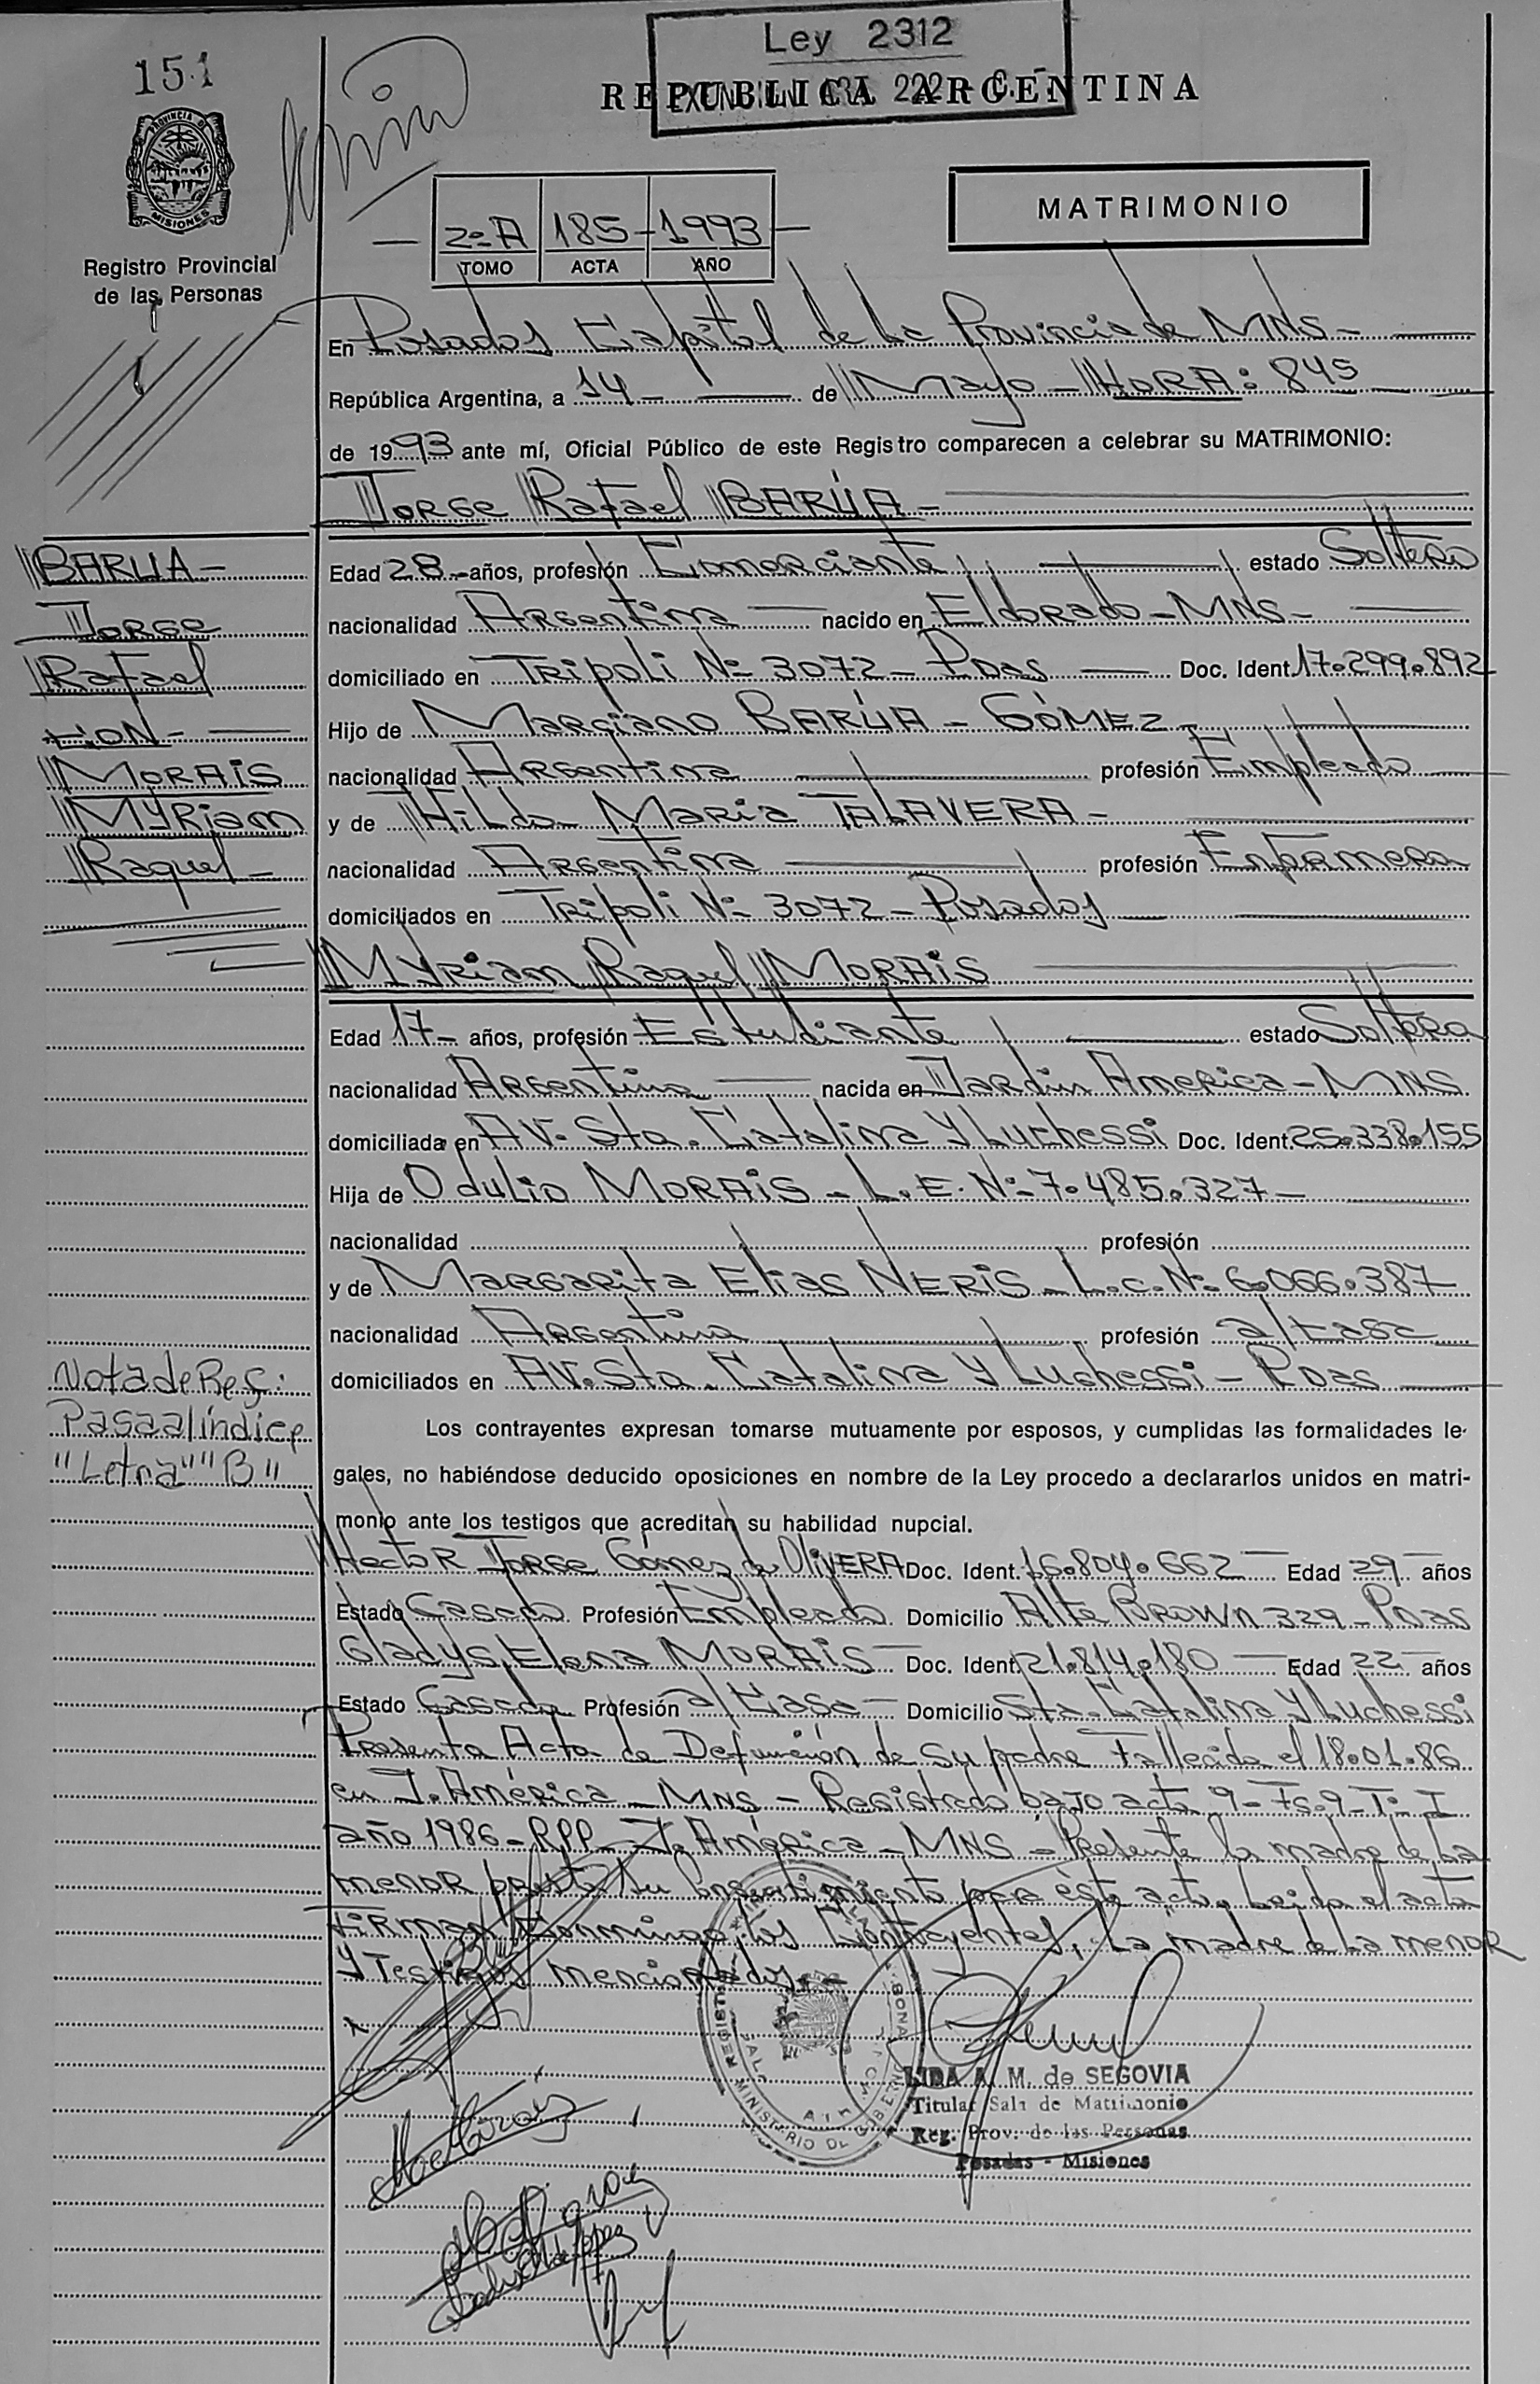 151
Ley 2312
REPUBLICA ARGENTINA
222
PROVINCIA DE
MISIONES
Registro Provincial
de las Personas
MATRIMONIO
2º A 185-1993
TOMO ACTA AÑO
En Posadas Capital de La Provincia de MNS-
República Argentina, a 14- de Mayo - HORA: 845
de 1993 ante mí, Oficial Público de este Registro comparecen a celebrar su MATRIMONIO:
Jorge Rafael BARÚA-
BARUA-
Jorge
Rafael
CON-
MORAIS
MYRiam
Raquel-
Edad 28-años, profesión Comerciante estado Soltero
nacionalidad Argentina nacido en Eldorado-MNS-
domiciliado en Tripoli Nº 3072-Pdas Doc. Ident. 17.299.892
Hijo de Marciano BARÚA - GÓMEZ-
nacionalidad Argentina profesión Empleado
y de Hilda María TALAVERA-
nacionalidad Argentina profesión Enfermera
domiciliados en Tripoli Nº 3072-Posadas
MYRiam Raquel MORAIS
Edad 17- años, profesión Estudiante estado Soltera
nacionalidad Argentina nacida en Jardín America-MNS.
domiciliada en AV. Sta. Catalina Y Luchessi Doc. Ident. 25.338.155
Hija de Odulio MORAIS - L.E. Nº 7.485.327-
nacionalidad profesión
y de MARGARITA Elias NERIS - L.C. Nº 6.066.387
nacionalidad Argentina profesión a/casa
domiciliados en AV. Sta. Catalina Y Luchessi - Pdas
Nota de Reg:
Pasa al índice
"Letra" "B"
Los contrayentes expresan tomarse mutuamente por esposos, y cumplidas las formalidades le-
gales, no habiéndose deducido oposiciones en nombre de la Ley procedo a declararlos unidos en matri-
monio ante los testigos que acreditan su habilidad nupcial.
Hector Jorge Gómez de OliVERA Doc. Ident. 16.804.662 Edad 29 años
Estado Casado Profesión Empleado Domicilio Alte Brown 329-Pdas
Gladys Elena MORAIS Doc. Ident. 21.814.180 Edad 22 años
Estado Casada Profesión a/casa Domicilio Sta. Catalina Y Luchessi
Presenta Acta de Defunción de su padre Fallecido el 18.01.86
en J. América - MNS - Registrado bajo acta 9-Fs.9-Tº I
año 1986-RPP- J. América - MNS - Presente la madre de La
menor presta su consentimiento para éste acto. Leida el acta
Firman Conmigo, los Contrayentes, La madre de La menor
y Testigos mencionados.-
REGISTRO
MINISTERIO DE GOBIERNO
LIDA A. M. de SEGOVIA
Titular Sala de Matrimonio
Reg. Prov. de las Personas
Posadas - Misiones